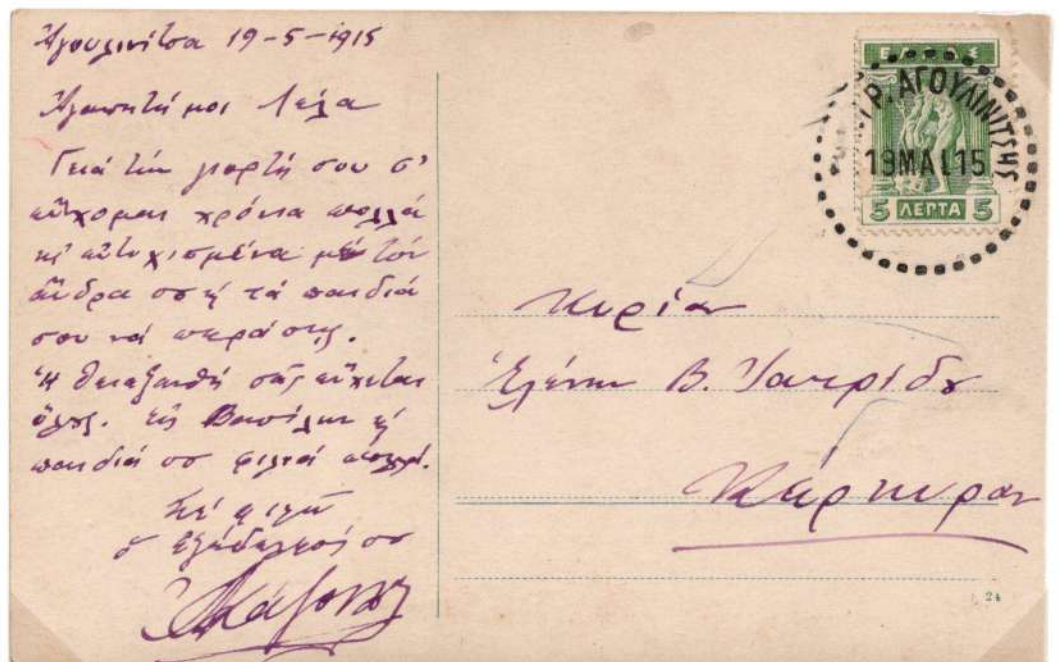 Ἀγουλινίτσα 19-5-1915
Ἀγαπητή μοι Λέλα
Γειά τήν γιορτή σου σ'
εὔχομαι χρόνια πολλά
κι εὐτυχισμένα μέ τόν
ἄνδρα σου κ τά παιδιά
σου νά περάσῃς.
Ἡ θεια Ξανθή σᾶς εὔχεται
ὅλους. Εἰς Βασίλην κ
παιδιά σου φιλιά πολλά.
Σέ φιλῶ
ὁ ἐξάδελφός σου
ΕΛΛΑΣ
5 ΛΕΠΤΑ 5
ΑΓΟΥΛΙΝΙΤΣΗΣ
19 ΜΑΙ. 15
Κυρίαν
Ἑλένην Β. Ἰατρίδου
Κέρκυραν
24